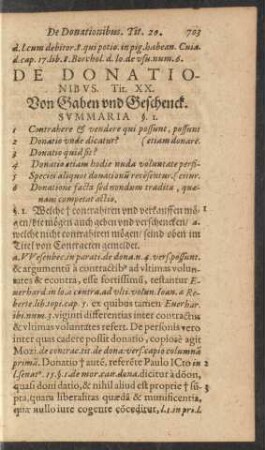 De Donationibus. Tit. 20. 703
d. l. cum debitor. t. qui potio. in pig. habean. Cuia.
d. cap. 17. lib. t. Borchol. d. lo. de usu. num. 6.
DE DONATIO-
NIBVS. Tit. XX.
Von Gaben vnd Geschenck.
SVMMARIA §. 1.
1 Contrahere & vendere qui possunt, possunt
2 Donatio vnde dicatur? (etiam donare.
3 Donatio quid sit?
4 Donatio etiam hodie nuda voluntate perfi-
5 Species aliquot donationũ recẽsentur. (citur.
6 Donatione facta sed nondum tradita, quæ-
nam competat actio.
§. 1. Welche † contrahiren vnd verkauffen mö- 1
gen / die mögen auch geben vnd verschencken / a
welche nicht contrahiren mögen / seind oben im
Titel von Contracten gemeldet.
a. VVesenbec. in parat. de dona. n. 4. vers. possunt.
& argumentũ à contractibꝰ ad vltimas volun-
tates & econtra, esse fortissimũ, testantur Eu-
erhard. in lo. a contra. ad vltis volun. Ioan. a Re-
berte lib. topi. cap. 5. ex quibus tamen Euerhar.
ibi. num. 3. viginti differentias inter contractus
& vltimas voluntates refert. De personis vero
inter quas cadere possit donatio, copiosè agit
Moz. de contrac. tit. de dona. vers. capio columnã
primã. Donatio † autẽ, referẽte Paulo ICto in 2
l. senatꝰ. 35. §. 1. de mor. cau. dona. dicitur à δῶρον,
quasi doni datio, & nihil aliud est propriè † sũ- 3
pta, quam liberalitas quædã & munificentia,
quæ nullo iure cogente cõceditur, l. 1. in pr. & l.